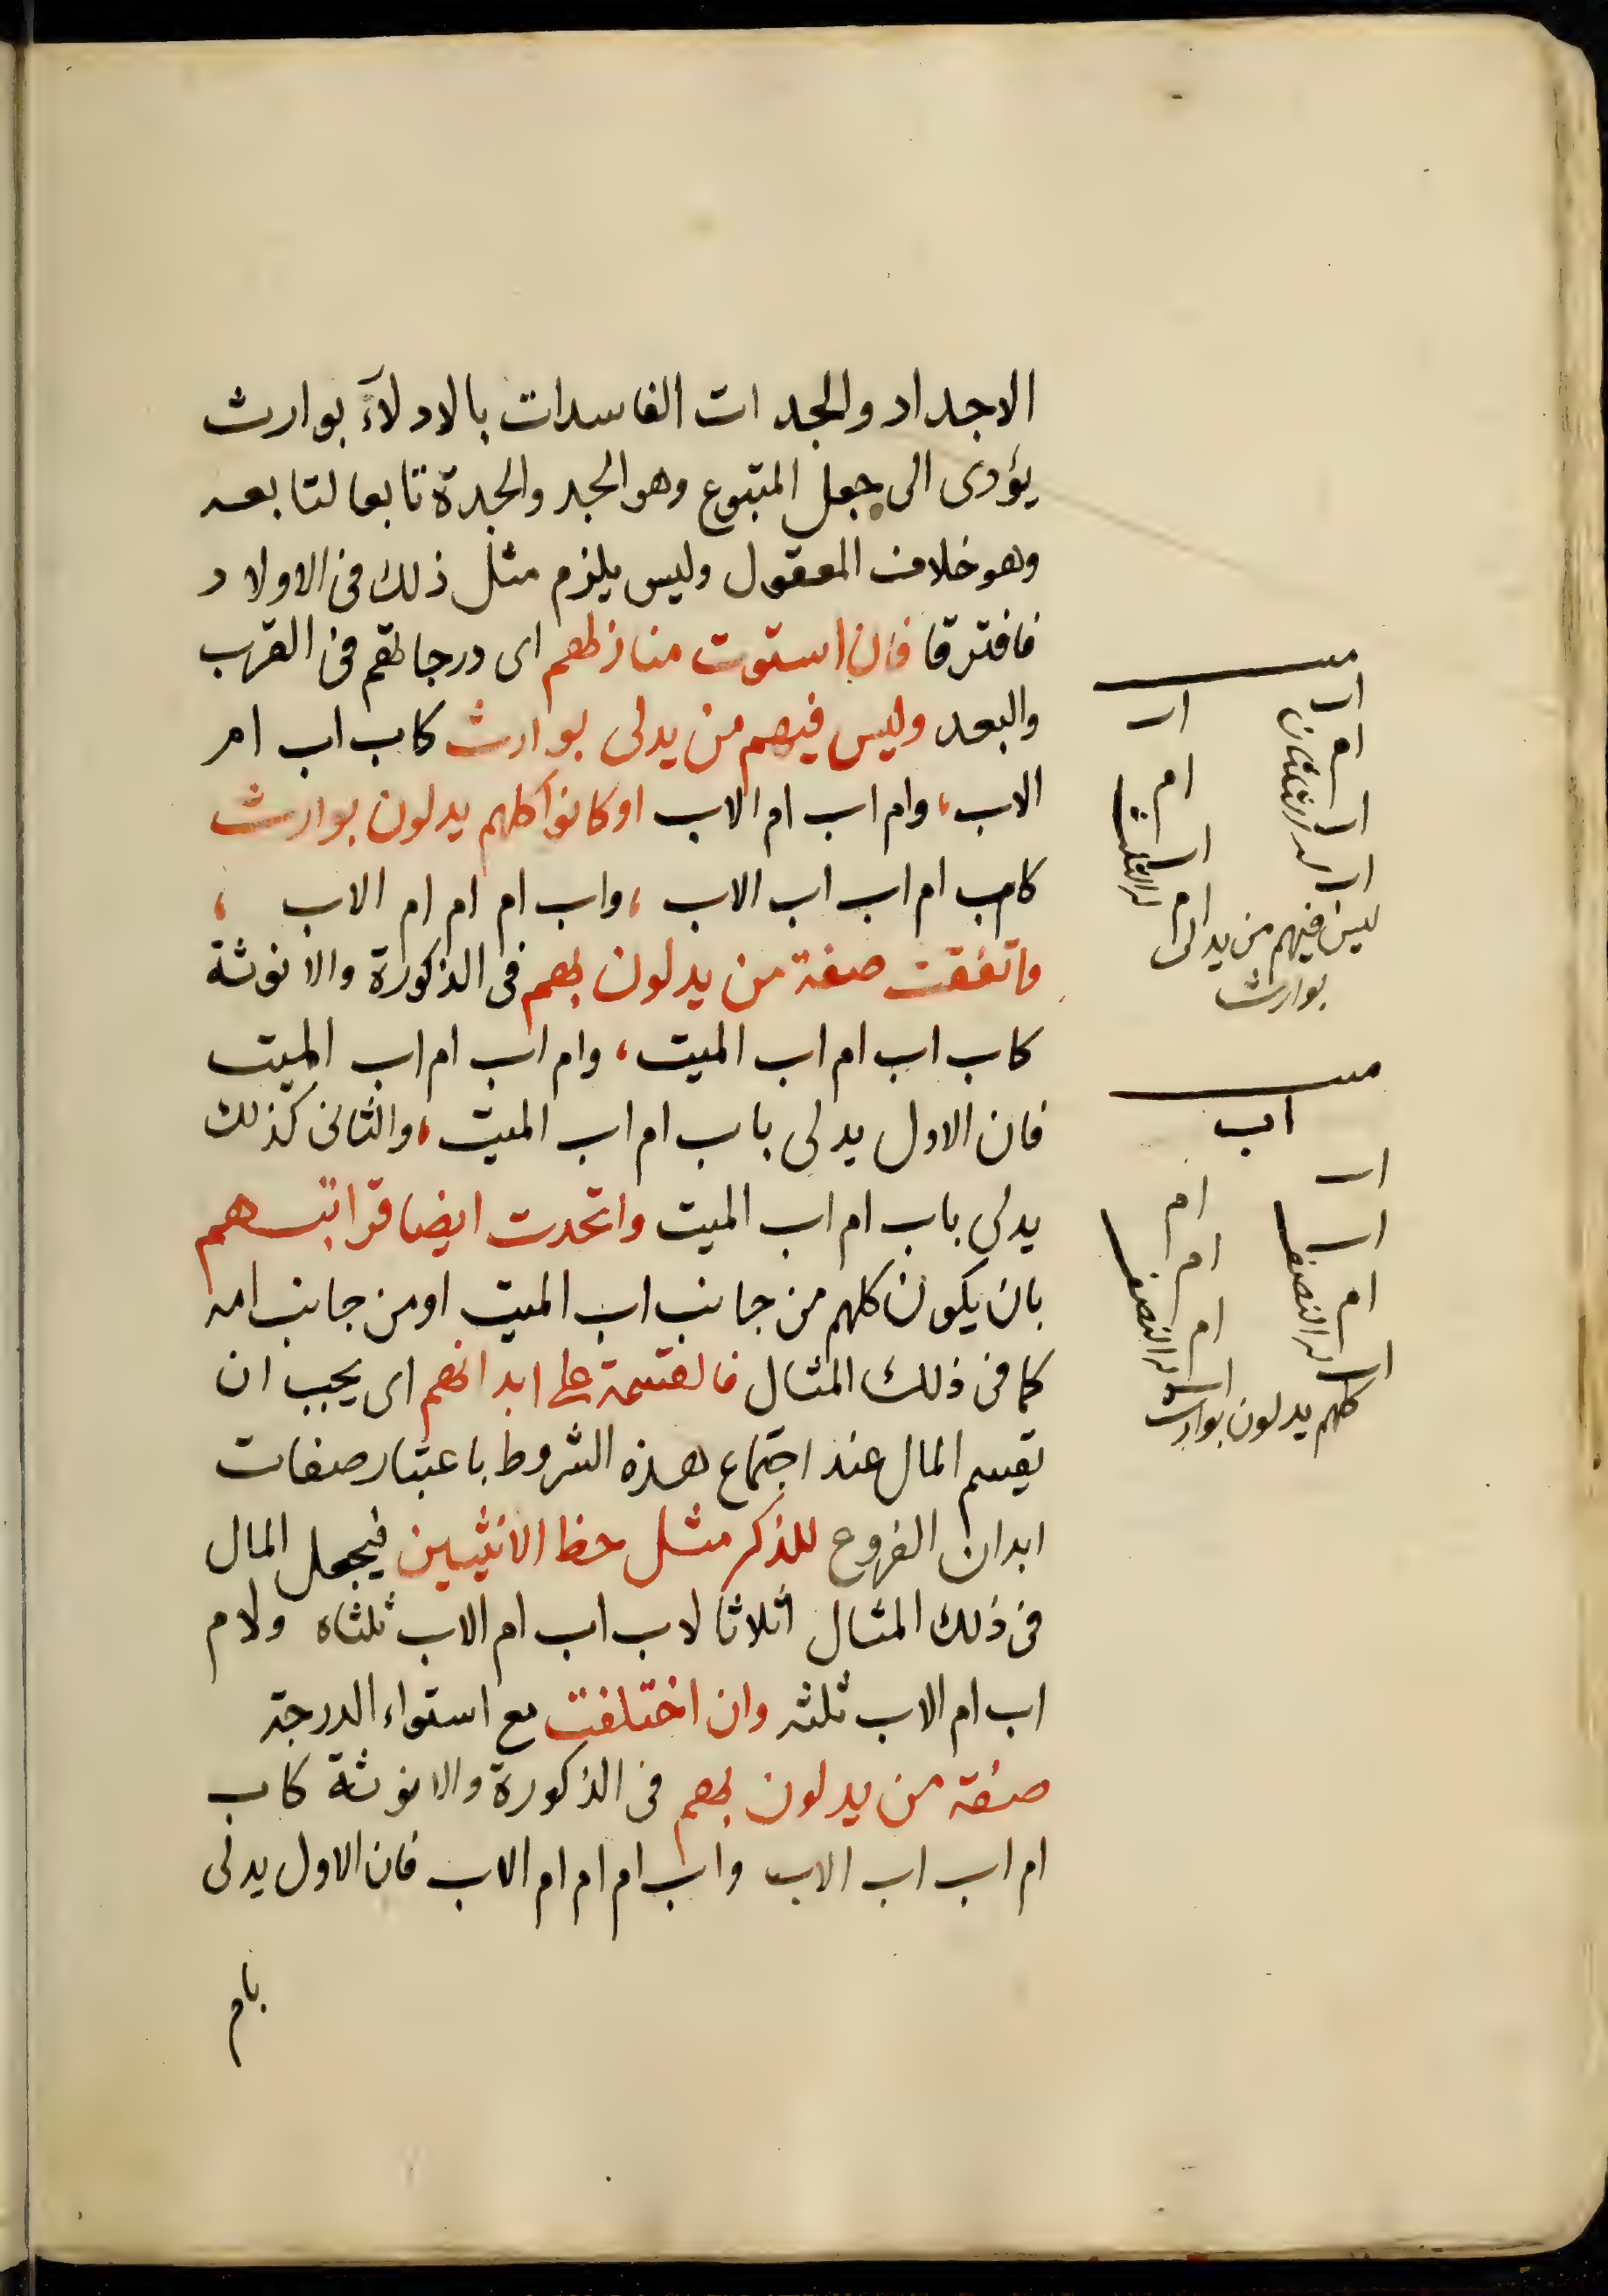 الاجداد والجدات الفاسدات بالادلآء بوارث
يؤدى الى جعل المتبوع وهو الجد والجدة تابعا لتابعه
وهو خلاف المعقول وليس يلزم مثل ذلك فى الاولاد
فافترقا فان استوت منازلهم اى درجاتهم فى القرب
والبعد وليس فيهم من يدلى بوارث كاب اب ام
الاب، وام اب ام الاب اوكانوا كلهم يدلون بوارث
كاب ام اب اب الاب، واب ام ام ام الاب،
واتفقت صفة من يدلون بهم فى الذكورة والانوثة
كاب اب ام اب الميت، وام اب ام اب الميت
فان الاول يدلى باب ام اب الميت، والثانى كذلك
يدلى باب ام اب الميت واتحدت ايضا قرابتهم
بان يكون كلهم من جانب اب الميت اومن جانب امه
كما فى ذلك المثال فالقسمة على ابدانهم اى يجب ان
يقسم المال عند اجتماع هذه الشروط باعتبار صفات
ابدان الفروع للذكر مثل حظ الانثيين فيجعل المال
فى ذلك المثال اثلاثا لاب اب ام الاب ثلثاه ولام
اب ام الاب ثلثه وان اختلفت مع استواء الدرجة
صفة من يدلون بهم فى الذكورة والانوثة كاب
ام اب اب الاب واب ام ام ام الاب فان الاول يدلى
بام
اب اب
ام ام
اب اب
اب ام
له الثلثان
له الثلث
ليس فيهم من يدلى
بوارث
اب
اب ام
اب ام
ام ام
اب اب
له النصف
له النصف
كلهم يدلون بوارث